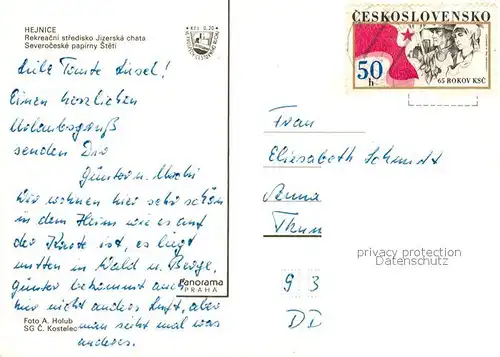 HEJNICE
Rekreační středisko Jizerská chata
Severočeské papírny Štětí
Kčs 0,20
Liebe Tante Liesel!
Einen herzlichen
Urlaubsgruß
senden Dir
Günter u. Uschi
Wir wohnen hier sehr schön
in dem Heim wie es auf
der Karte ist, es liegt
mitten in Wald u. Berge,
Günter bekommt auch
hier nicht anders Luft, aber
man sieht mal was
anderes.
Foto A. Holub
SG Č. Kostelec
Panorama
PRAHA
ČESKOSLOVENSKO
50 h
65 ROKOV KSČ
Frau
Elisabeth Schmidt
Thum
privacy protection
Datenschutz
9 3
DD